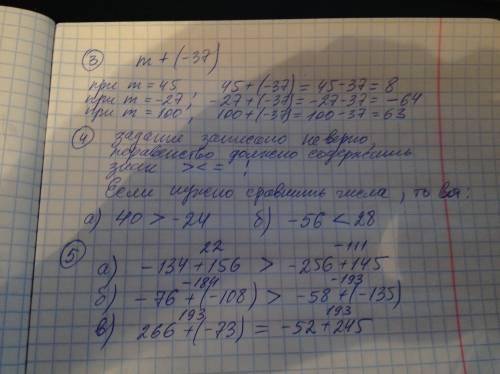 ③ m + (-37)
при m = 45 45 + (-37) = 45 - 37 = 8
при m = -27; -27 + (-37) = -27 - 37 = -64
при m = 100; 100 + (-37) = 100 - 37 = 63
④ задание записано неверно
неравенство должно содержать
знаки > < = !
Если нужно сравнить числа, то вот:
а) 40 > -24 б) -56 < 28
22 -111
⑤ а) -134 + 156 > -256 + 145
-184 -193
б) -76 + (-108) > -58 + (-135)
193 193
в) 266 + (-73) = -52 + 245